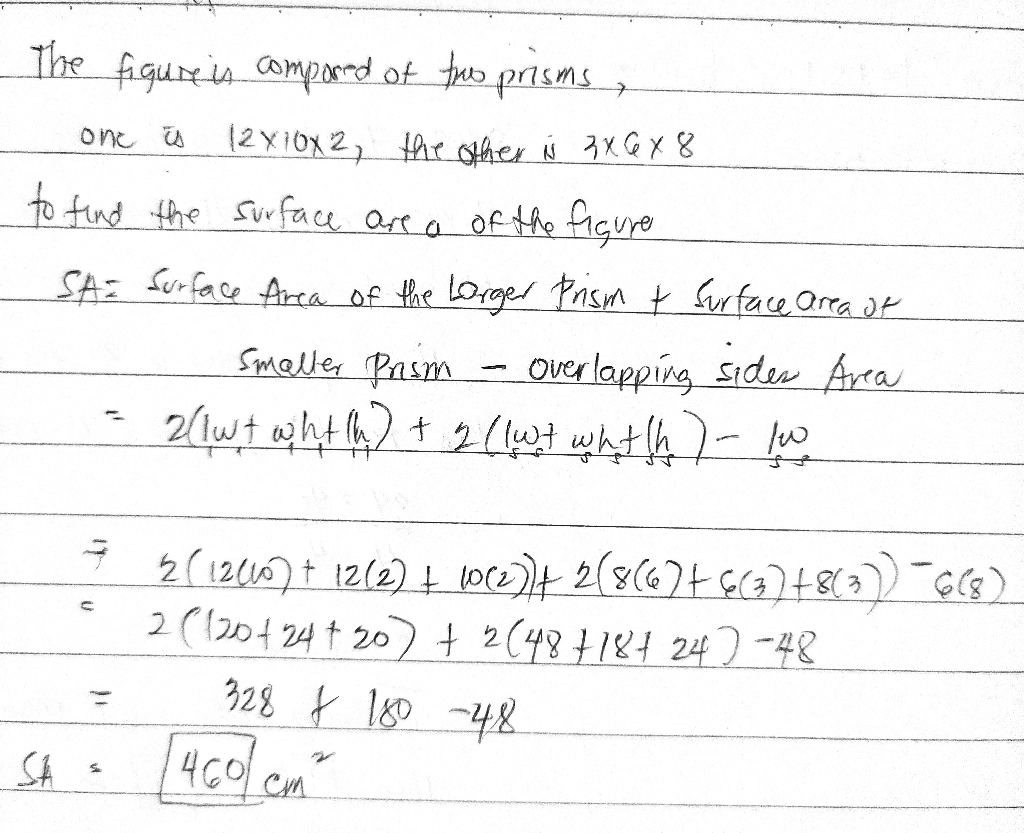 The figure is composed of two prisms,
one is 12x10x2, the other is 3x6x8
to find the surface area of the figure
SA = Surface Area of the Larger Prism + Surface area of
Smaller Prism - overlapping sides Area
= 2(lw + wh + lh) + 2(lw + wh + lh) - lw
= 2(12(10) + 12(2) + 10(2)) + 2(8(6) + 6(3) + 8(3)) - 6(8)
= 2(120 + 24 + 20) + 2(48 + 18 + 24) - 48
= 328 + 180 - 48
SA = 460 cm²